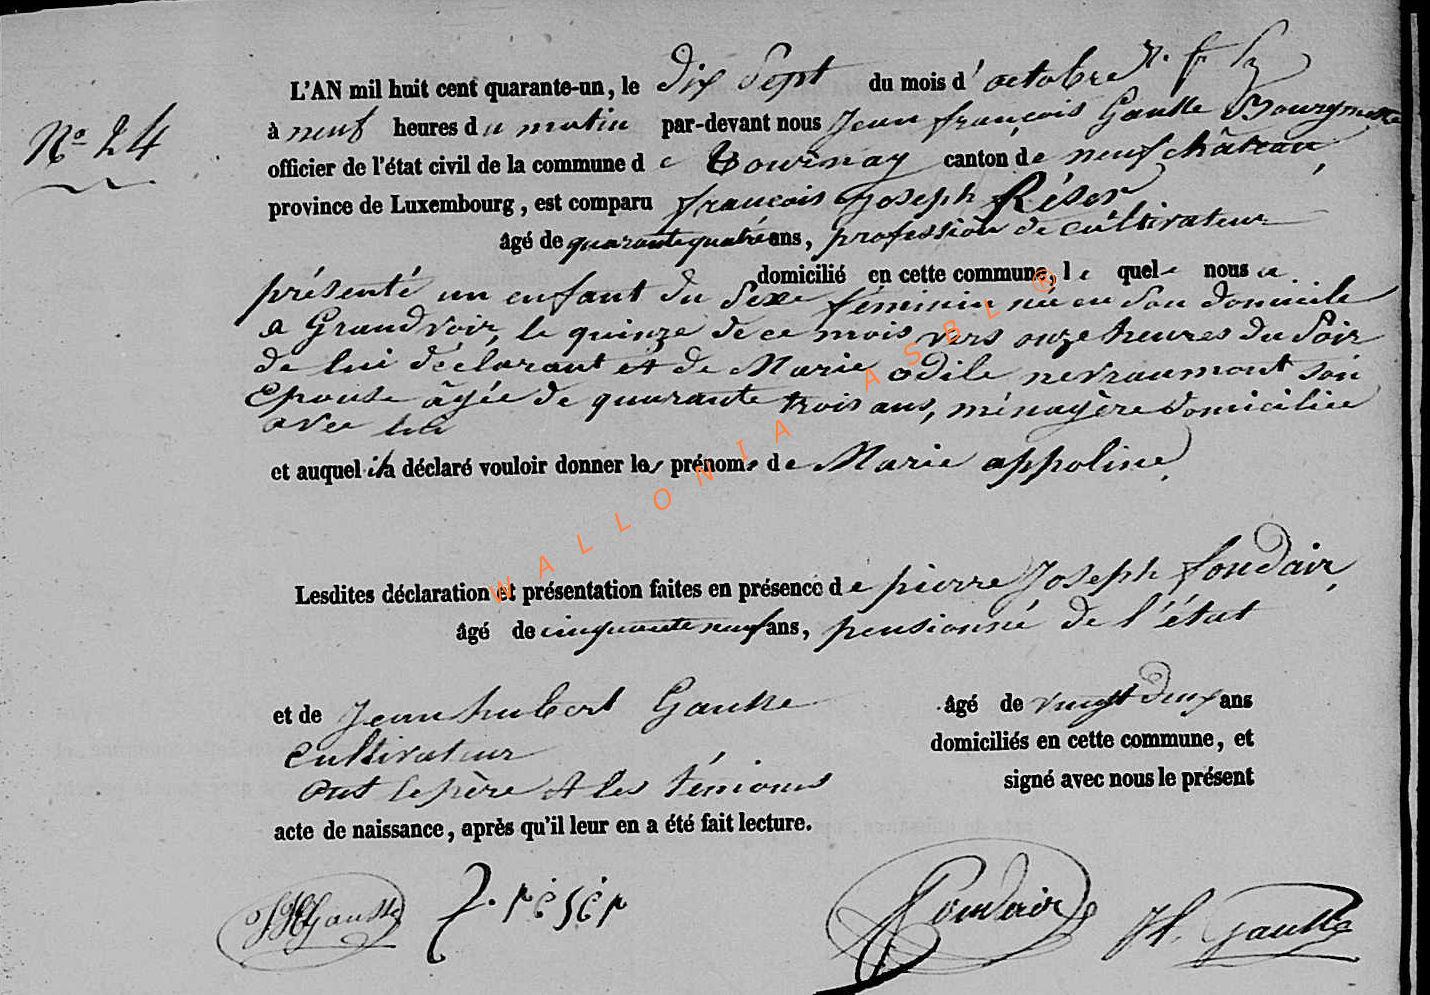 L'AN mil huit cent quarante-un, le dix Sept du mois d'octobre
N° 24
à neuf heures du matin par-devant nous Jean françois Gauste Bourgmestre
officier de l'état civil de la commune de Tournay canton de neufchâteau,
province de Luxembourg, est comparu françois Joseph Réser
âgé de quarante quatre ans, profession de cultivateur
domicilié en cette commune, le quel nous a
présenté un enfant du Sexe féminin née en Son domicile
a Grandvoir, le quinze de ce mois vers onze heures du Soir
de lui déclarant et de Marie odile nevraumont son
Epouse âgée de quarante trois ans, ménagère domiciliée
avec lui
et auquel il a déclaré vouloir donner les prénoms de Marie appoline,
Lesdites déclaration et présentation faites en présence de pierre Joseph foudair,
âgé de cinquante neuf ans, pensionné de l'état
et de Jean hubert Gauste âgé de vingt deux ans
Cultivateur domiciliés en cette commune, et
ont le père et les témoins signé avec nous le présent
acte de naissance, après qu'il leur en a été fait lecture.
Gauste f. réser foudair JH. Gauste
WALLONIA ASBL ®